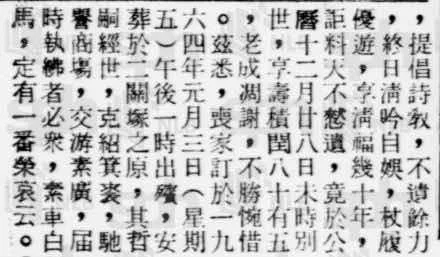 ，提倡詩敎，不遺餘力
，終日淸吟自娛，杖履
優遊，享淸福幾十年，
詎料天不憗遺，竟於公
曆十二月廿八日未時別
世，享壽積閏八十有五
，老成凋謝，不勝惋惜
。茲悉，喪家訂於一九
六四年元月三日（星期
五）午後一時出殯，安
葬於二關塚之原，其哲
嗣經世，克紹箕裘，馳
譽商場，交游素廣，屆
時執紼者必衆，素車白
馬，定有一番榮哀云。